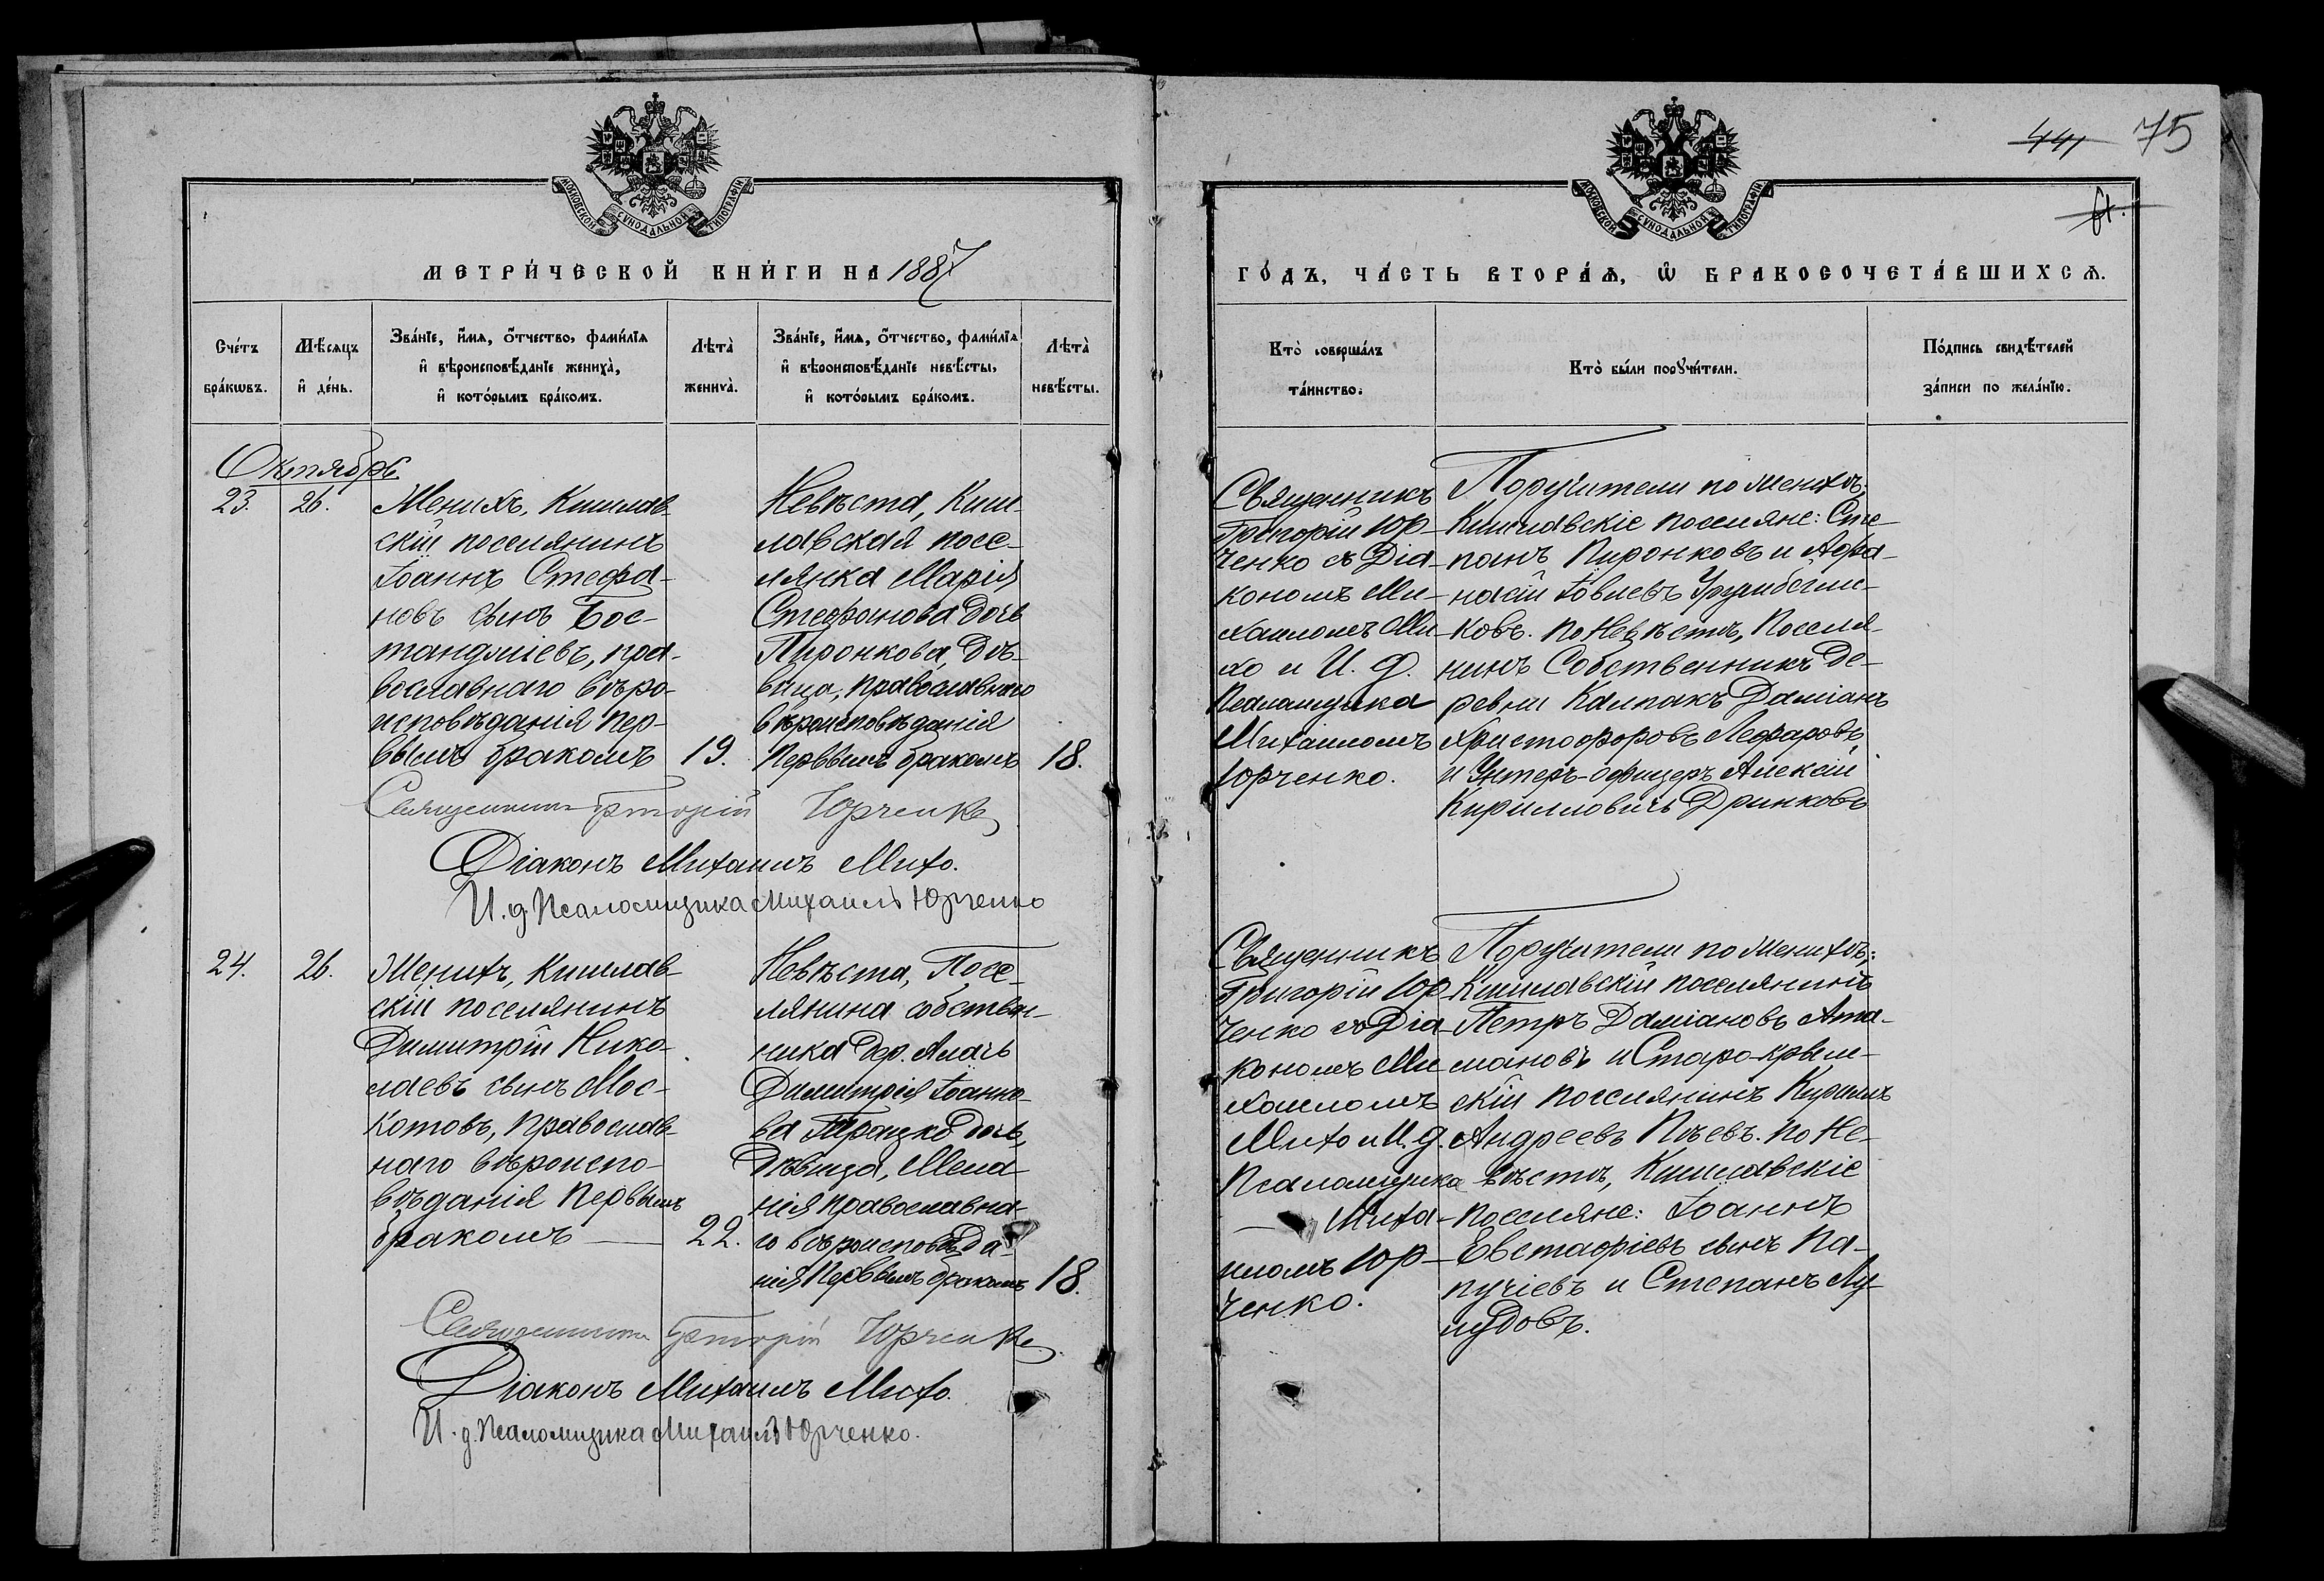 44 75
61.
МОСКОВСКОЙ СѴНОДАЛЬНОЙ ТИПОГРАФІИ
МЕТРИ́ЧЕСКОЙ КНИ́ГИ НА 1887
Сче́тъ бра́кωвъ.
Мѣ́сяцъ и҆ де́нь.
Зва́нїе, и҆́мѧ, ѻ҆́тчество, фами́лїѧ
и҆ вѣроисповѣ́данїе женихà,
и҆ кото́рымъ бра́комъ.
Лѣтà женихà.
Зва́нїе, и҆́мѧ, ѻ҆́тчество, фами́лїѧ
и҆ вѣроисповѣ́данїе невѣ́сты,
и҆ кото́рымъ бра́комъ.
Лѣтà невѣ́сты.
Октябрь
23. 26.
Женихъ, Кишлав-
скій поселянинъ
Іоаннъ Стефа-
новъ сынъ Бос-
танджіевъ, пра-
вославнаго вѣро-
исповѣданія пер-
вымъ бракомъ 19.
Невѣста, Киш-
лавская посе-
лянка Марія
Стефанова дочь
Пиронкова, дѣ-
вица, православнаго
вѣроисповѣданія
первымъ бракомъ 18.
Священникъ Григорій Юрченко
Діаконъ Михаилъ Михо.
И. д. Псаломщика Михаилъ Юрченко
24. 26.
Женихъ, Кишлав-
скій поселянинъ
Димитрій Нико-
лаевъ сынъ Мос-
котовъ, православ-
наго вѣроиспо-
вѣданія первымъ
бракомъ 22.
Невѣста, Посе-
лянина собствен-
ника дер. Алачь
Димитрія Іоанно-
ва дочь,
Дѣвица, Мела-
нія православна-
го вѣроисповѣда-
нія первымъ бракомъ 18.
Священникъ Григорій Юрченко
Діаконъ Михаилъ Михо.
И. д. Псаломщика Михаилъ Юрченко.
МОСКОВСКОЙ СѴНОДАЛЬНОЙ ТИПОГРАФІИ
ГО́ДЪ, ЧА́СТЬ ВТОРА́Ѧ, Ѡ҆ БРАКОСОЧЕТА́ВШИХСѦ.
Кто̀ соверша́лъ
та́инство.
Кто̀ бы́ли порꙋчи́тели.
По́дпись свидѣ́телей
за́писи по жела́нїю.
Священникъ
Григорій Юр-
ченко съ Діа-
кономъ Ми-
хаиломъ Ми-
хо и И. д.
Псаломщика
Михаиломъ
Юрченко.
Поручители по женихѣ;
Кишлавскіе поселяне: Сте-
панъ Пиронковъ и Афа-
насій Іовлевъ
ковъ. по Невѣстѣ, Поселя-
нинъ Собственникъ де-
ревни Калпакъ Даміанъ
Христофоровъ Лефаровъ
и Унтеръ-офицеръ Алексій
Кирилловичъ Дринковъ
Священникъ
Григорій Юр-
ченко съ Діа-
кономъ Ми-
хаиломъ
Михо и И. д.
Псаломщика
Миха-
иломъ Юр-
ченко.
Поручители по женихѣ;
Кишлавскій поселянинъ
Петръ Даміановъ Ата-
мановъ и Старо-Крым-
скій поселянинъ Кириллъ
Андреевъ Пѣевъ. по Не-
вѣстѣ, Кишлавскіе
поселяне: Іоаннъ
Евстафіевъ сынъ Па-
пучіевъ и Степанъ Лу-
лудовъ.